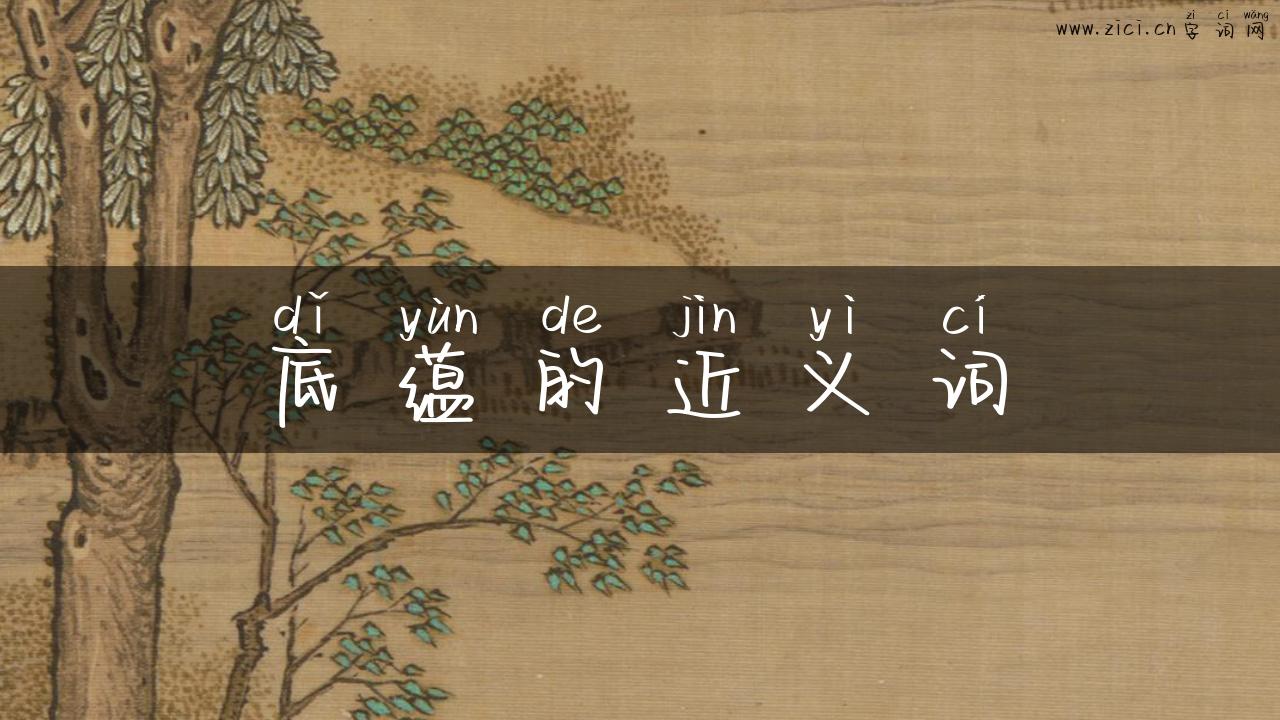 zì cí wǎng
www.zici.cn 字 词 网
dǐ yùn de jìn yì cí
底 蕴 的 近 义 词